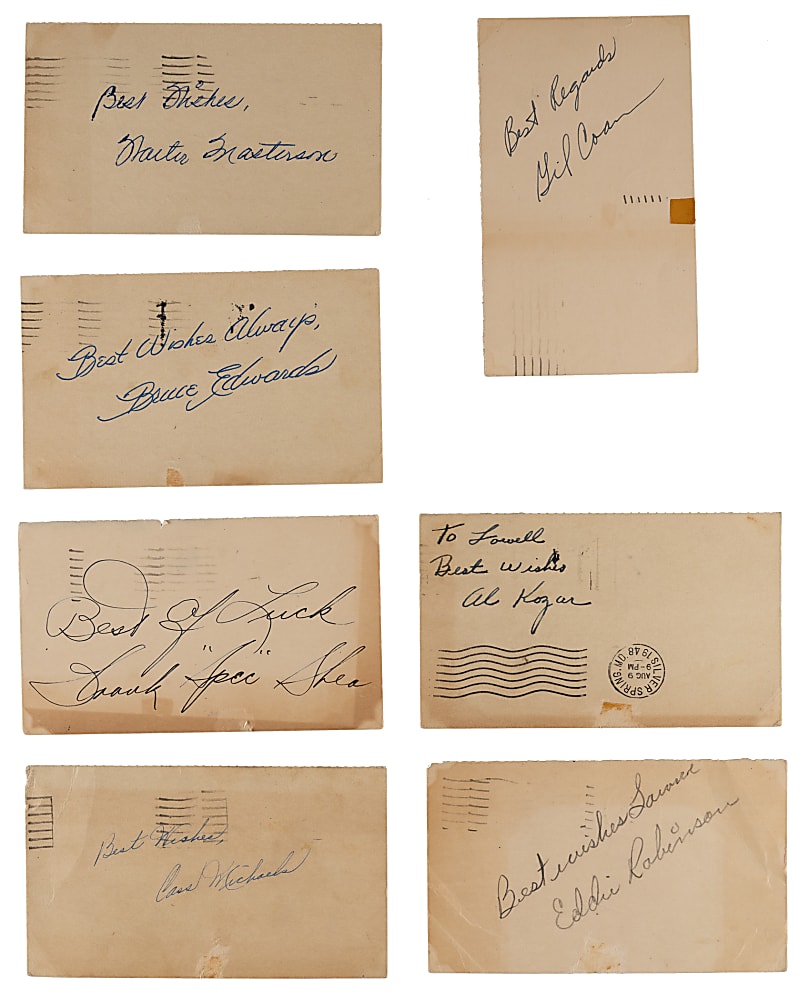 Best Wishes,
Walter Masterson
Best Regards
Gil Coan
Best Wishes Always,
Bruce Edwards
Best of Luck
Frank "Spec" Shea
To Lowell
Best Wishes
Al Kozar
SILVER SPRING, MD.
AUG 9
9-PM
1948
Best Wishes,
Cass Michaels
Best wishes
Eddie Robinson